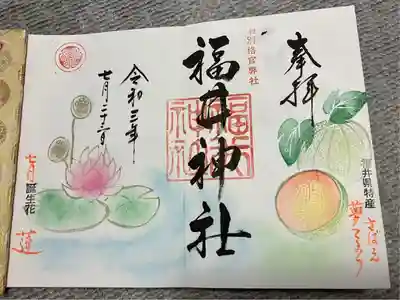 奉拝
福井県特産
さばえ
夢てまり
旧別格官幣社
福井神社
令和三年
七月二十三日
七月誕生花
蓮